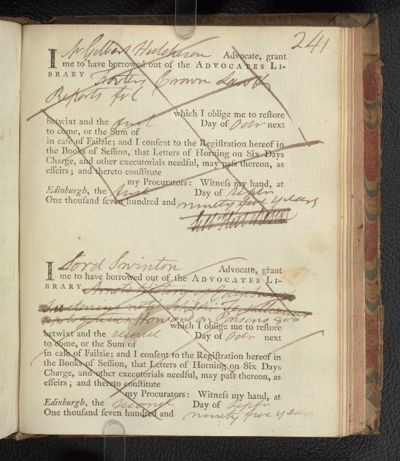 241
I Mr Gilbert Hutcheson Advocate, grant
me to have borrowed out of the ADVOCATES LI-
BRARY Crown
Reports fol
which I oblige me to restore
betwixt and the first Day of next
to come, or the Sum of
in case of Failzie; and I consent to the Registration hereof in
the Books of Session, that Letters of Horning on Six Days
Charge, and other executorials needful, may pass thereon, as
effeirs; and thereto constitute
my Procurators: Witness my hand, at
Edinburgh, the first Day of
One thousand seven hundred and ninety five years
I Lord Swinton Advocate, grant
me to have borrowed out of the ADVOCATES LI-
BRARY
which I oblige me to restore
betwixt and the second Day of next
to come, or the Sum of
in case of Failzie; and I consent to the Registration hereof in
the Books of Session, that Letters of Horning on Six Days
Charge, and other executorials needful, may pass thereon, as
effeirs; and thereto constitute
my Procurators: Witness my hand, at
Edinburgh, the second Day of Sept
One thousand seven hundred and ninety five years